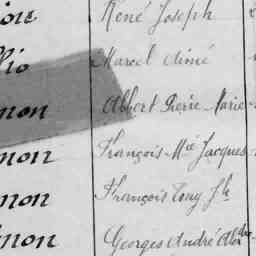 René Joseph
Marcel Aimé
non Albert Pierre Marie
non François Mie Jacques
non François Tony
non Georges André